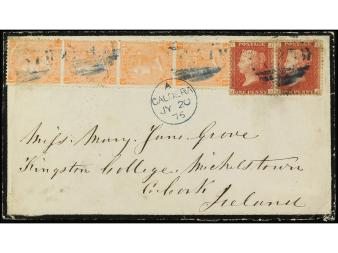 POSTAGE POSTAGE
ONE PENNY ONE PENNY
A
CALDERA
JY 20
75
Miss Mary Jane Grove
Kingston College Michelstown
Co. Cork
Ireland